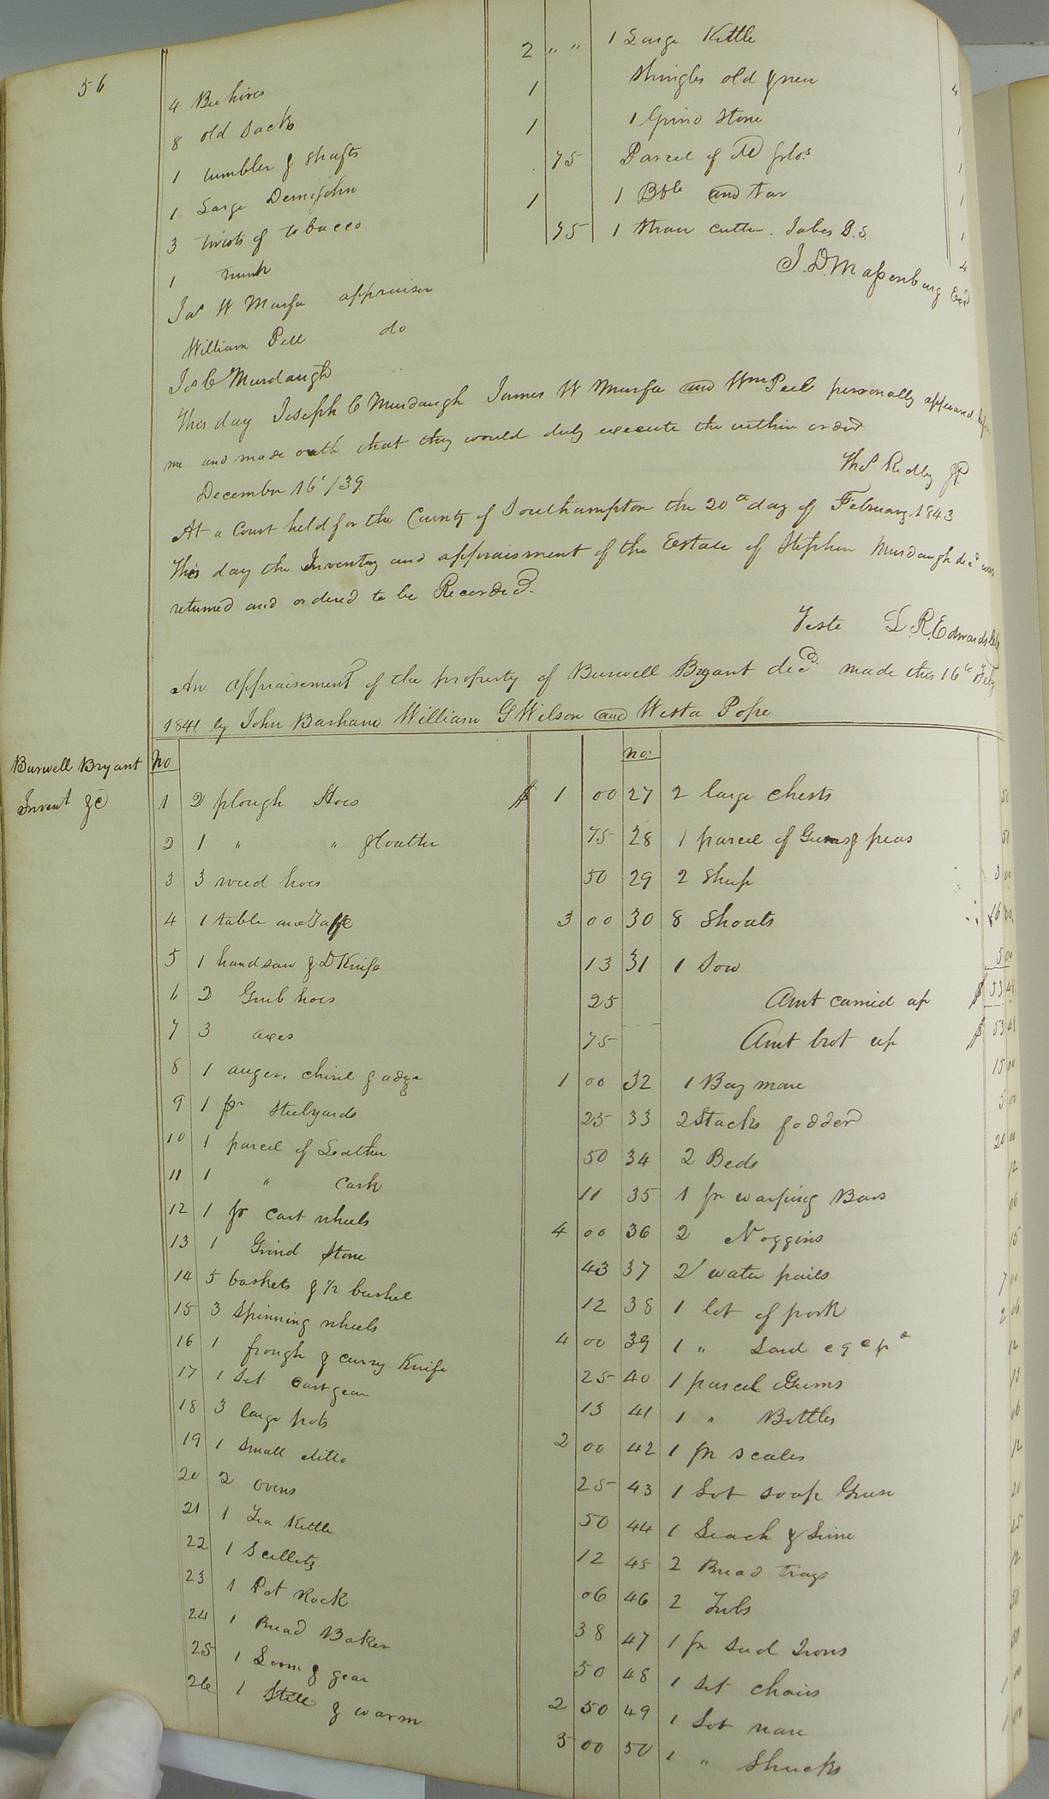 56
4 Bee hives 2 " " 1 Large Kettle 4
8 old Sacks 1 Shingles old & new 1
1 tumbler & shafts 1 1 Grind Stone 1
1 Large Demijohn 75 Parcel of Old
3 twists of tobacco 1 1 Bble and tar 1
1 trunk 75 1 Straw cutter. Jabes B.S. 4
Jas W Murfee appraiser J. D. Massenburg
William Pell do
Jos C Murdaugh
This day Joseph C Murdaugh James W Murfee and Wm Pell personally appeared before
me and made oath that they would duly execute the within order
December 16'/39 Ths Ridley JP
At a Court held for the County of Southampton the 20th day of February 1843
This day the Inventory and appraisment of the Estate of Stephen Murdaugh decd was
returned and ordered to be Recorded.
Teste L. R. Edwards Clk
An appraisement of the property of Burwell Bryant decd. made this 16th Feby
1841 by John Barham William G Wilson and Westa Pope
Burwell Bryant
Invent &c
No no.
1 2 plough Hoes $ 1 00 27 2 large chests
2 1 " " & Coulter 75 28 1 parcel of Gums & peas
3 3 weed hoes 50 29 2 Sheep 3 00
4 1 table and Safe 3 00 30 8 Shoats 16 00
5 1 handsaw & D Knife 13 31 1 Sow 5 00
6 2 Grub hoes 25 Amt carried up $ 53 48
7 3 axes 75 Amt brot up $ 53 48
8 1 auger, chisel & adze 1 00 32 1 Bay mare 15 00
9 1 pr Steelyards 25 33 2 Stacks fodder 5 00
10 1 parcel of Leather 50 34 2 Beds 20 00
11 1 " Cask 11 35 1 pr warping Bars 12
12 1 pr Cart wheels 4 00 36 2 Noggins 06
13 1 Grind Stone 43 37 2 water pails 15
14 5 baskets & 1/2 bushel 12 38 1 lot of pork 7 00
15 3 Spinning wheels 4 00 39 1 " Lard 2 06
16 1 frough & curry Knife 25 40 1 parcel Gums 12
17 1 Set Cart gear 13 41 1 " Bottles
18 3 large pots 2 00 42 1 pr scales 06
19 1 small ditto 25 43 1 Lot soap Grease 12
20 2 ovens 50 44 1 Leach & Lime 20
21 1 Tea Kettle 12 45 2 Bread trays 25
22 1 Scillets 06 46 2 Tubs
23 1 Pot Rack 38 47 1 pr Sad Irons 50
24 1 Bread Baker 50 48 1 Set chairs 50
25 1 Loom & gear 2 50 49 1 Lot ware 1 00
26 1 Still & warm 5 00 50 1 " Shucks 1 00